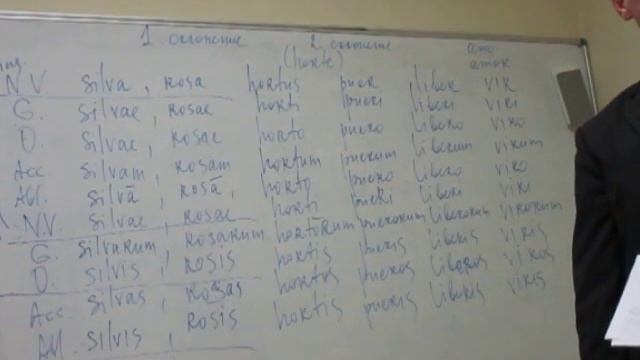 1. склонение 2. склонение amo
ing. (horte) amor
N.V. silva, rosa hortus puer liber vir
G. silvae, rosae horti pueri liberi viri
D. silvae, rosae horto puero libero viro
Acc silvam, rosam hortum puerum liberum virum
Abl. silvā, rosā, horto puero libero viro
N.V. silvae, rosae horti pueri liberi viri
G. silvarum, rosarum hortōrum puerorum liberorum virorum
D. silvis, rosis hortis pueris liberis viris
Acc. silvas, rosas hortos pueros liberos viros
Abl. silvis, rosis hortis pueris liberis viris